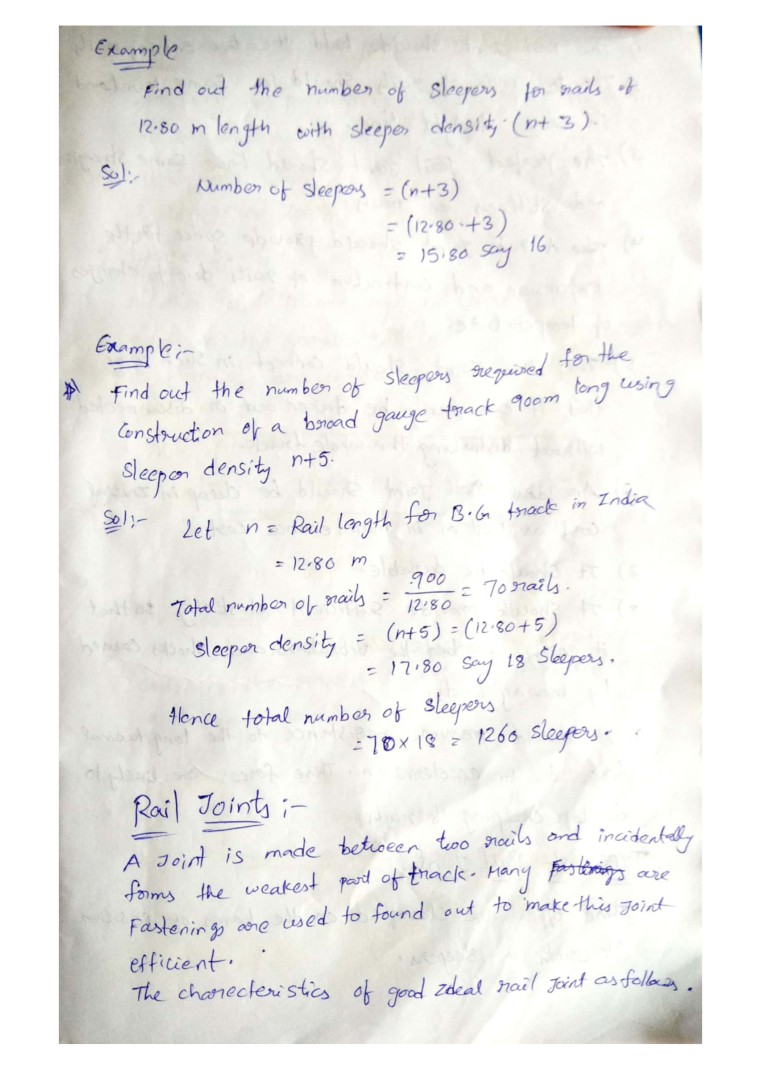 Example
Find out the number of Sleepers for rails of
12.80 m length with sleeper density (n+3).
Sol:-
Number of Sleepers = (n+3)
= (12.80 +3)
= 15.80 say 16
Example:-
Find out the number of Sleepers required for the
Construction of a broad gauge track 900m long using
Sleeper density n+5.
Sol:- Let n = Rail length for B.G track in India
= 12.80 m
Total number of rails = 900/12.80 = 70 rails.
Sleeper density = (n+5) = (12.80+5)
= 17.80 say 18 Sleepers.
Hence total number of Sleepers
= 70 x 18 = 1260 Sleepers.
Rail Joints:-
A Joint is made between two rails and incidentally
forms the weakest part of track. Many Fastenings are
Fastenings are used to found out to make this Joint
efficient.
The charecteristics of good Ideal rail Joint as follows.